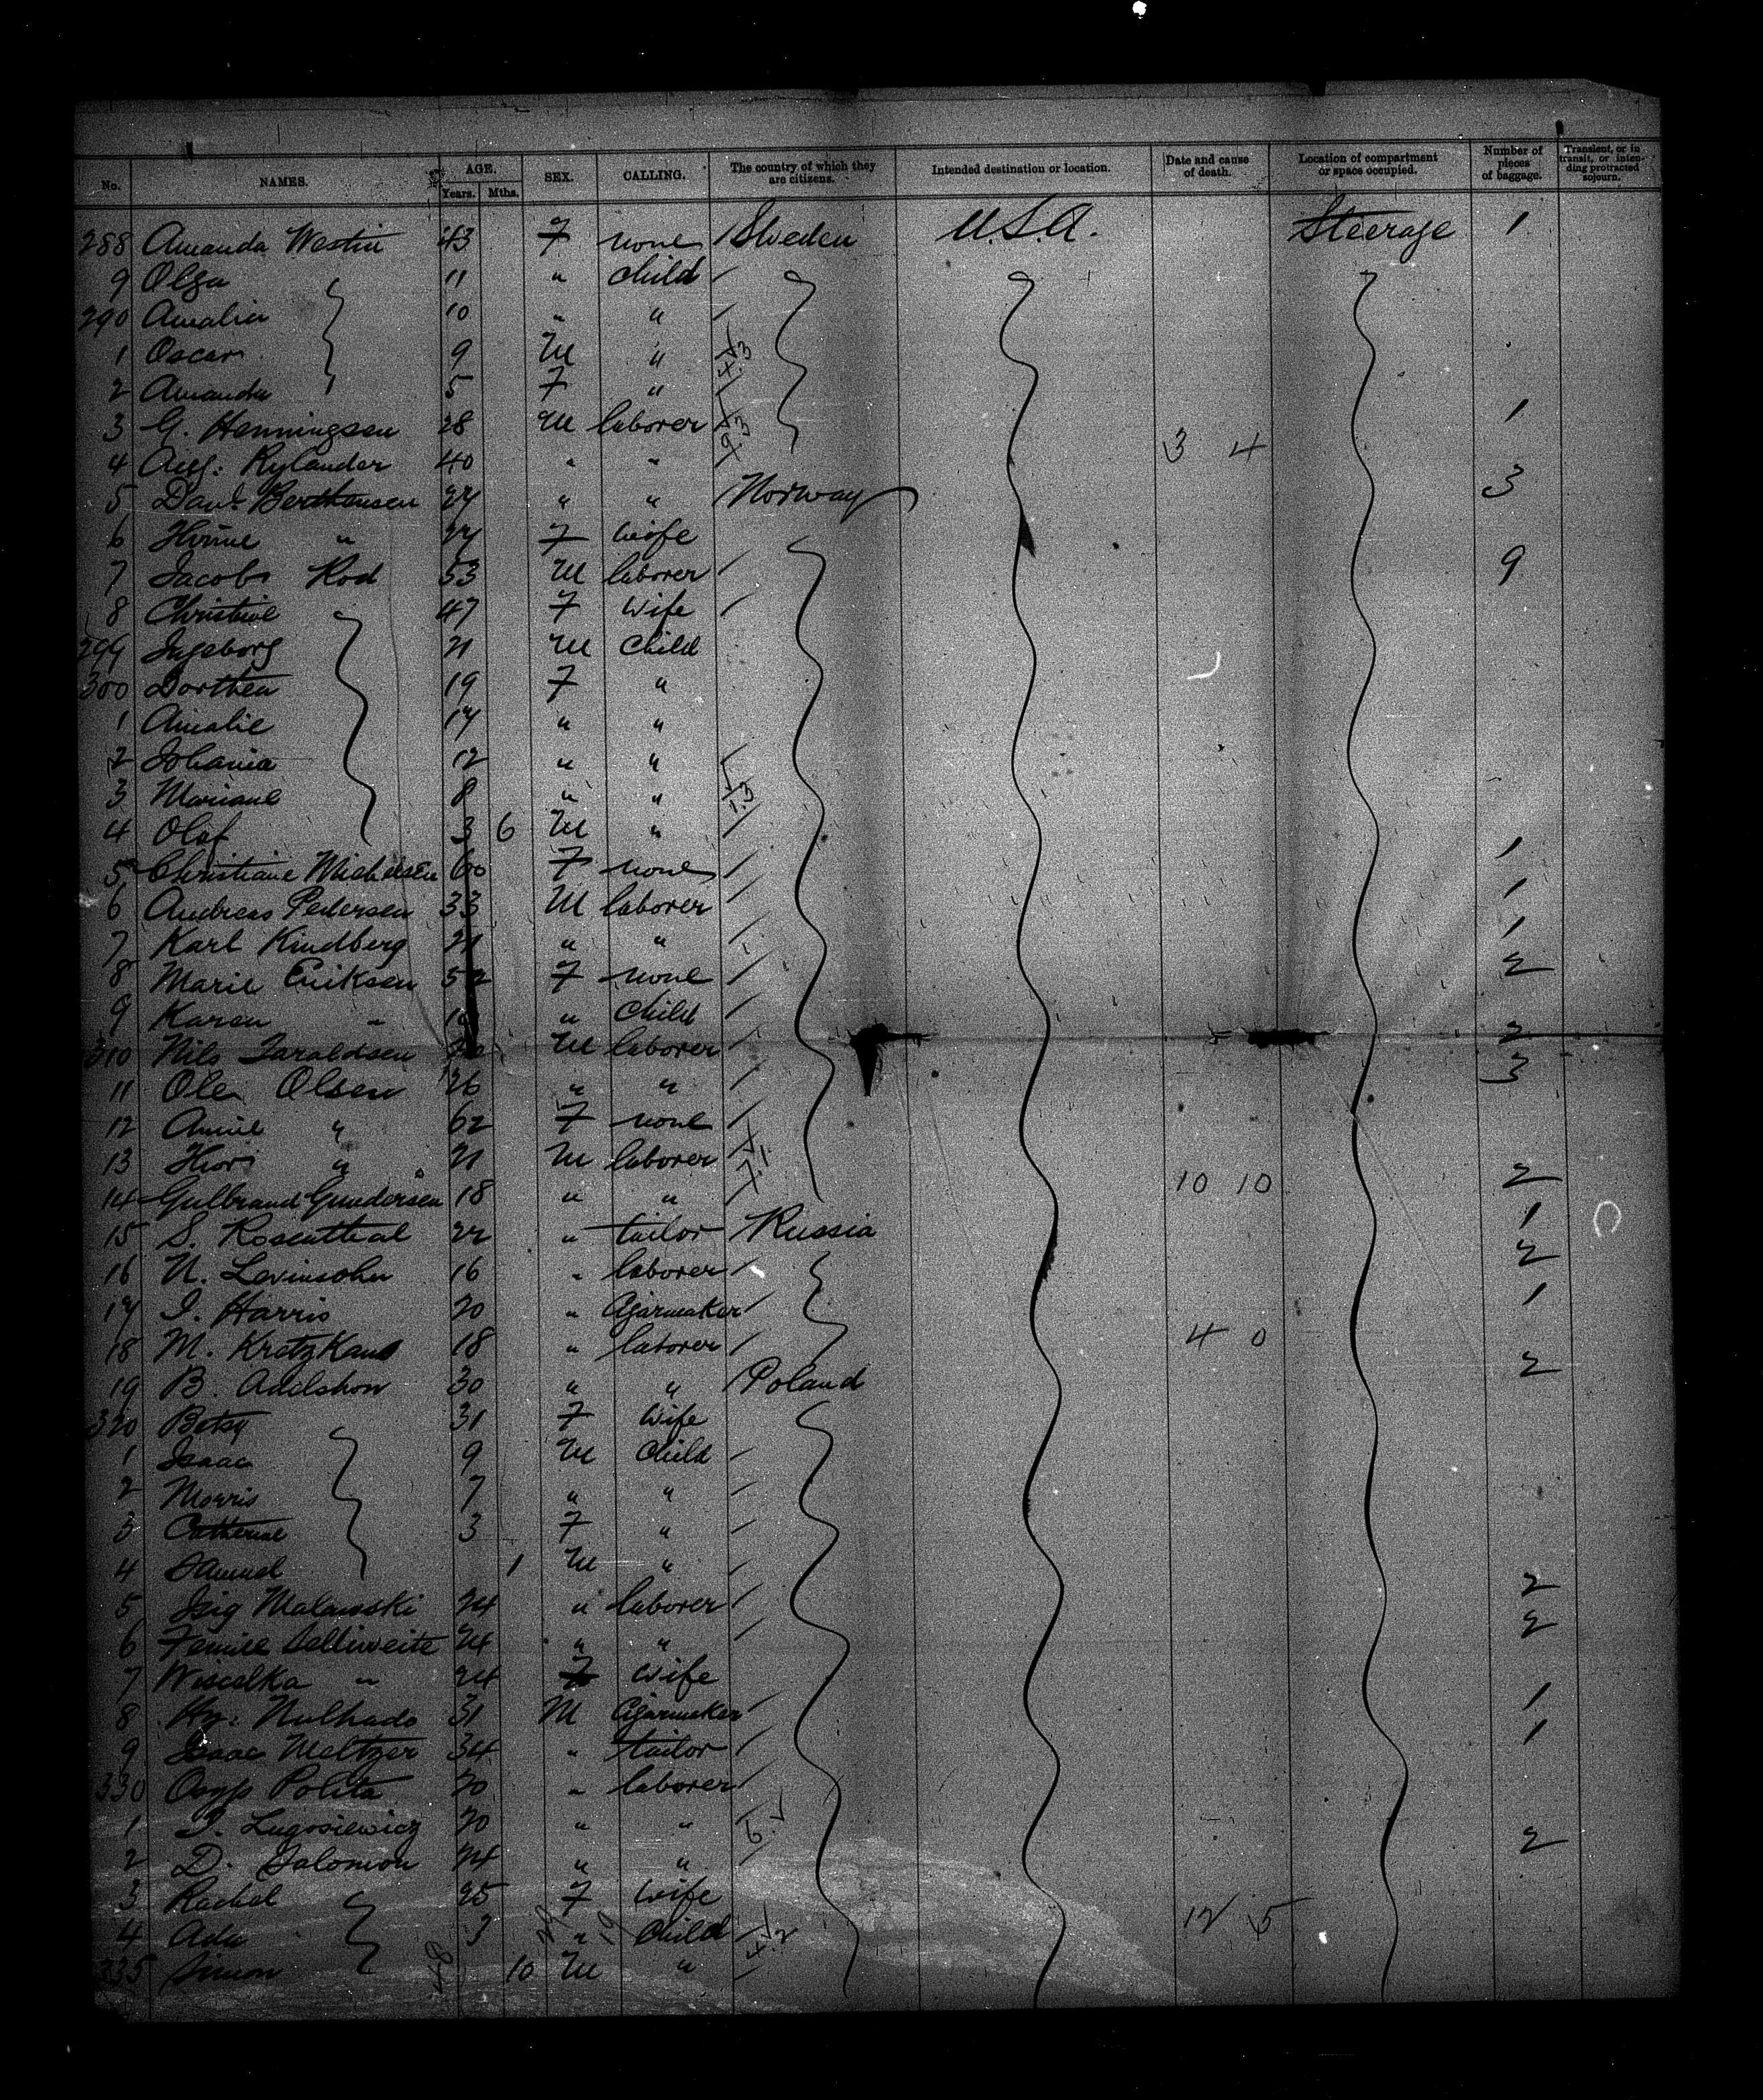 No. NAMES. AGE. Years. Mths. SEX. CALLING. The country of which they are citizens. Intended destination or location. Date and cause of death. Location of compartment or space occupied. Number of pieces of baggage. Transient, or in transit, or intending protracted sojourn.
288 Amanda Westin 43 F none / Sweden U.S.A. Steerage 1
9 Olga 11 " child /
290 Amalia 10 " " /
1 Oscar 9 M "
2 Amanda 5 F " /
3 G. Henningsen 28 M laborer 1
4 Aug: Rylander 40 " " / 3 4
5 Danl Berthensen 27 " " / Norway 3
6 " 27 F wife
7 Jacob Rod 53 M laborer / 9
8 Christine 47 F wife /
299 Ingeborg 21 M child
300 Dorthea 19 F "
1 Amalie 17 " "
2 Johania 12 " "
3 Mariane 8 " "
4 Olaf 3 6 M " /
5 Christiane Michelsen 60 F none / 1
6 Andreas Pedersen 33 M laborer / 1
7 Karl Kindberg 21 " " / 1
8 Marie Eriksen 52 F none / 2
9 Karen " " child /
310 Nils Taraldsen M laborer / 2
11 Ole Olsen 26 " " / 3
12 Anne " 62 F none /
13 " 21 M laborer
14 Gulbrand Gundersen 18 " " / 10 10 2
15 S. Rosenthal 22 " tailor / Russia 1
16 N. Levinsohn 16 " laborer / 2
17 I. Harris 20 " Cigarmaker / 1
18 M. 18 " laborer / 4 0
19 B. Adelshon 30 " " / Poland 2
320 Betsy 31 F wife
1 Isaac 9 M child /
2 Morris 7 " " /
3 Catherine 3 F " /
4 Samuel 1 M " /
5 Isig Malawski 24 " laborer / 2
6 24 " " / 2
7 " 24 F wife
8 Hy: Nulhado 31 M Cigarmaker / 1
9 Isaac Meltzer 34 " tailor / 1
330 Polita 20 " laborer /
1 20 " "
2 D. Salomon 24 " " / 2
3 Rachel 25 F wife
4 Ada 3 " child / 12 5
335 Simon 10 M " /